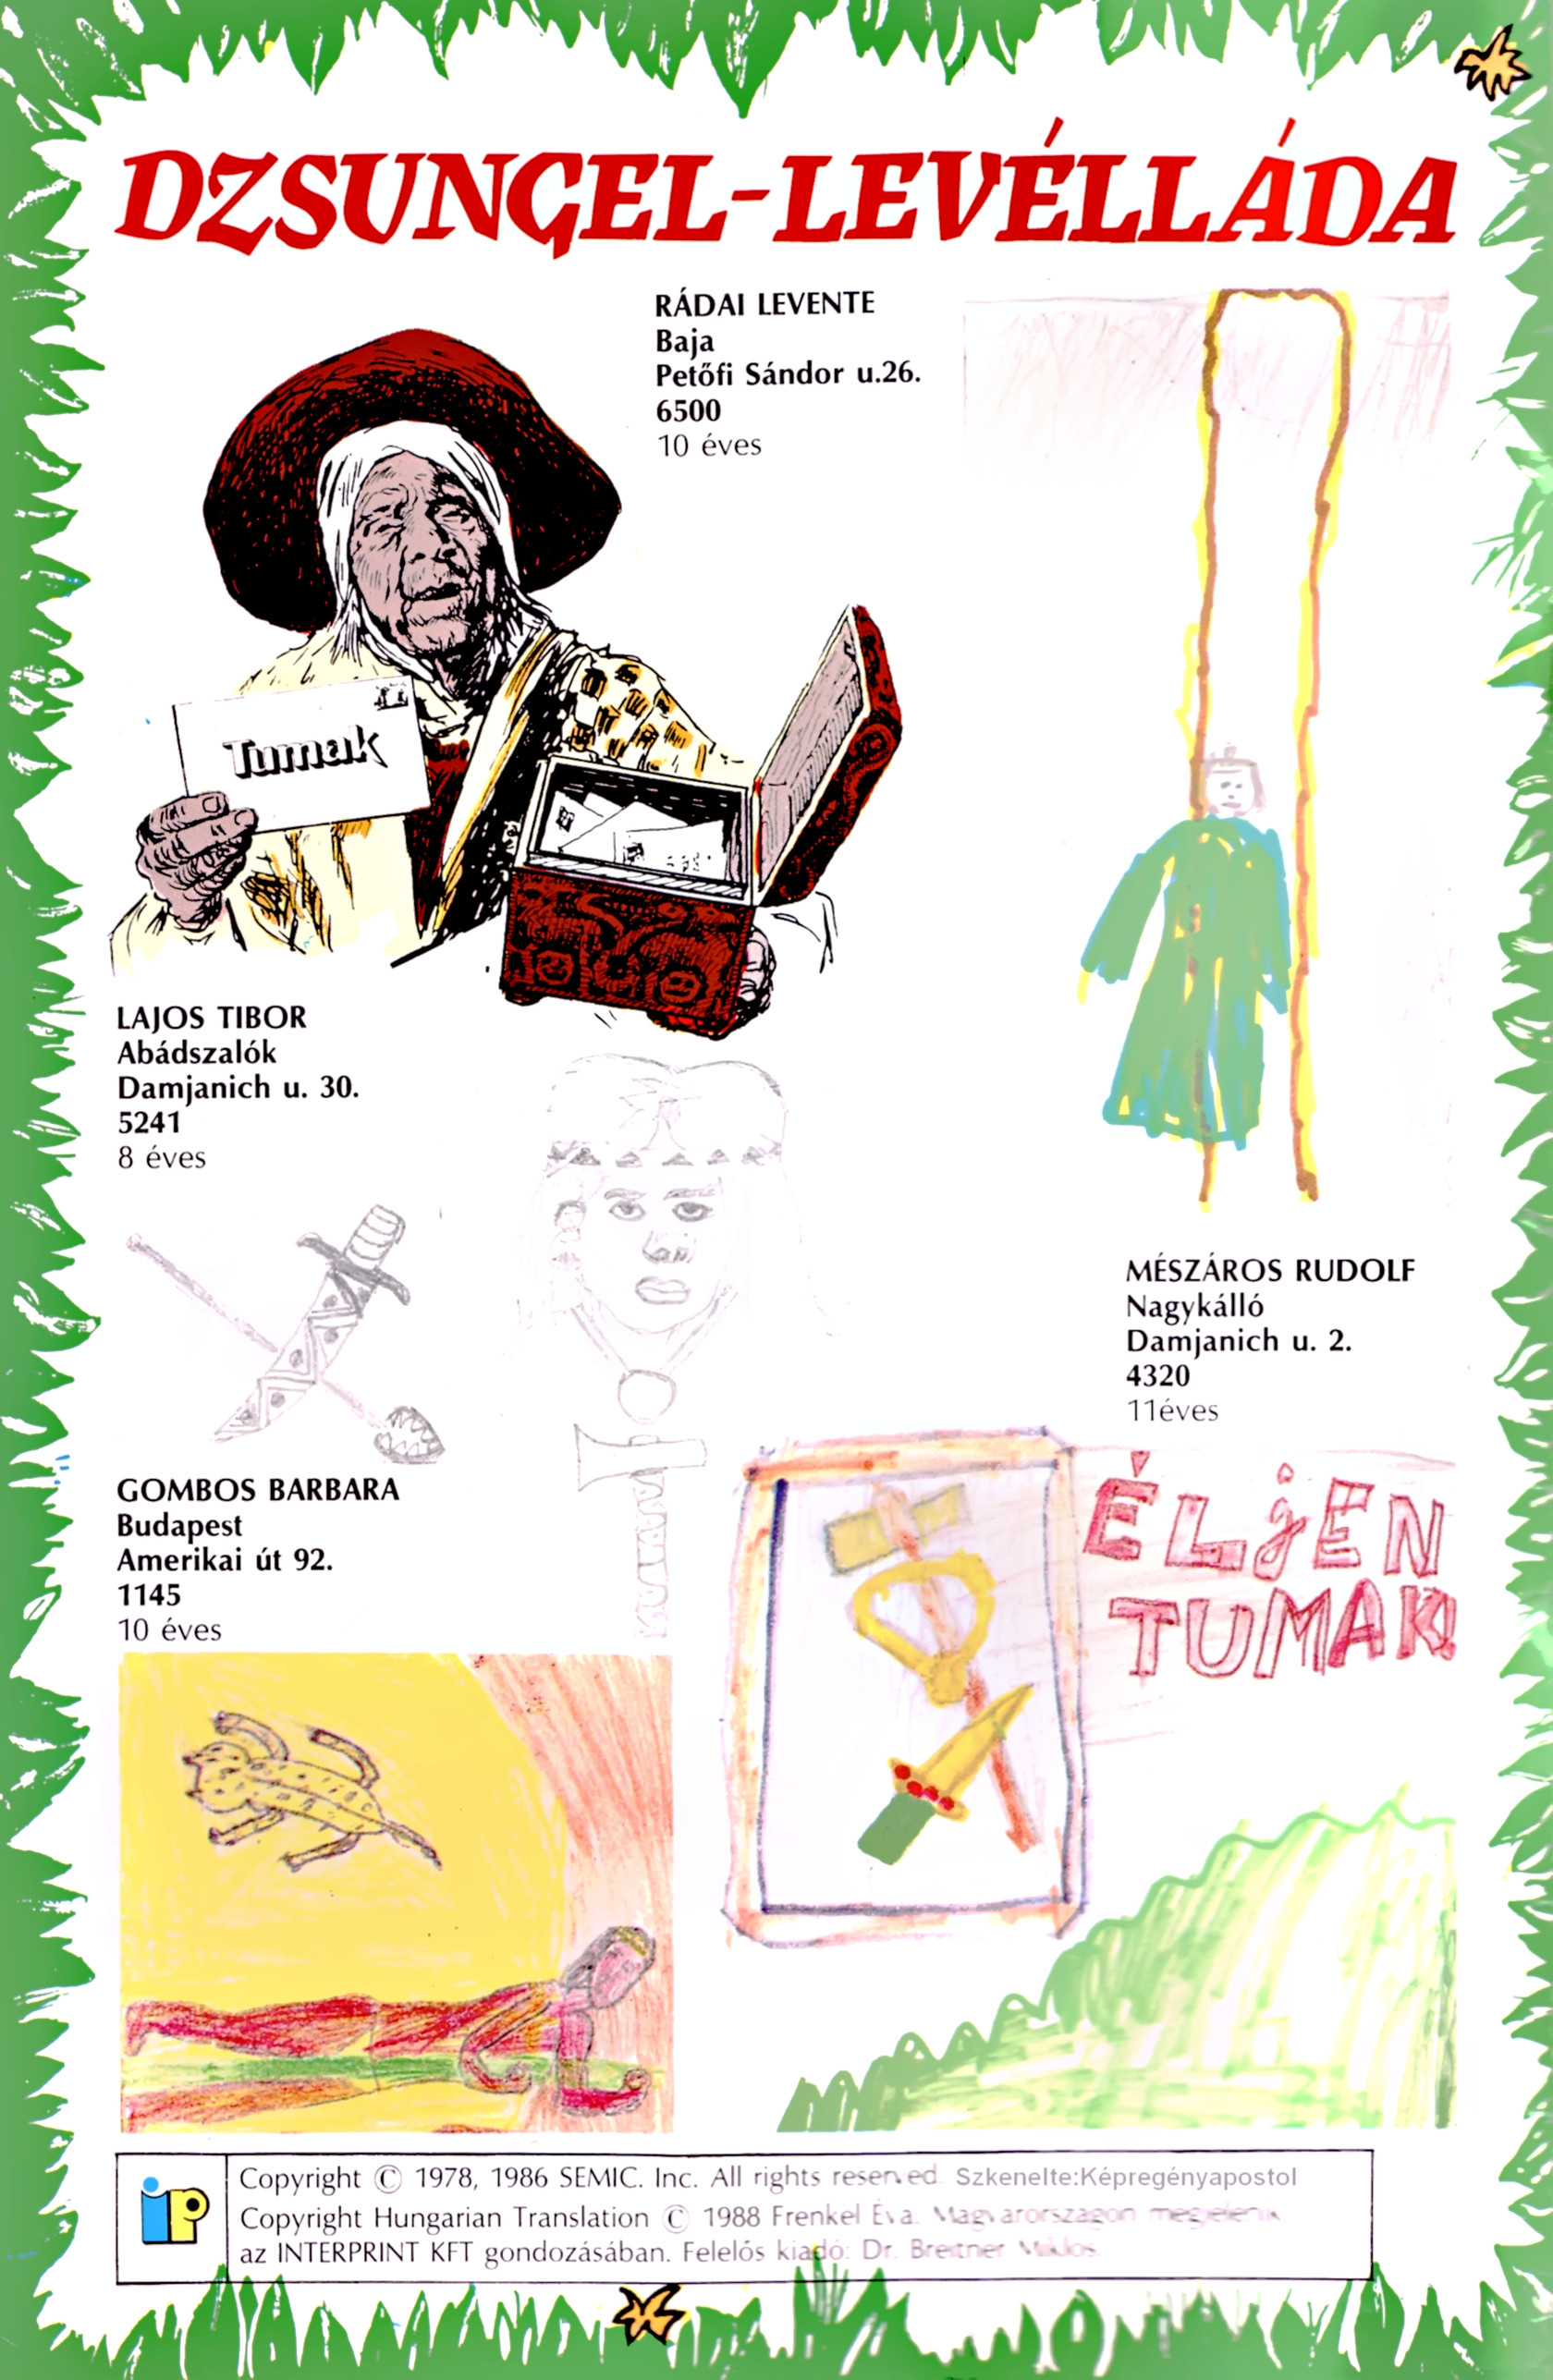 DZSUNGEL-LEVÉLLÁDA
RÁDAI LEVENTE
Baja
Petőfi Sándor u.26.
6500
10 éves
Tumak
LAJOS TIBOR
Abádszalók
Damjanich u. 30.
5241
8 éves
MÉSZÁROS RUDOLF
Nagykálló
Damjanich u. 2.
4320
11éves
GOMBOS BARBARA
Budapest
Amerikai út 92.
1145
10 éves
ÉLjEN
TUMAK!
ip
Copyright © 1978, 1986 SEMIC. Inc. All rights reserved. Szkenelte:Képregényapostol
Copyright Hungarian Translation © 1988 Frenkel Éva. Magyarországon megjelenik
az INTERPRINT KFT gondozásában. Felelős kiadó: Dr. Breitner Miklós